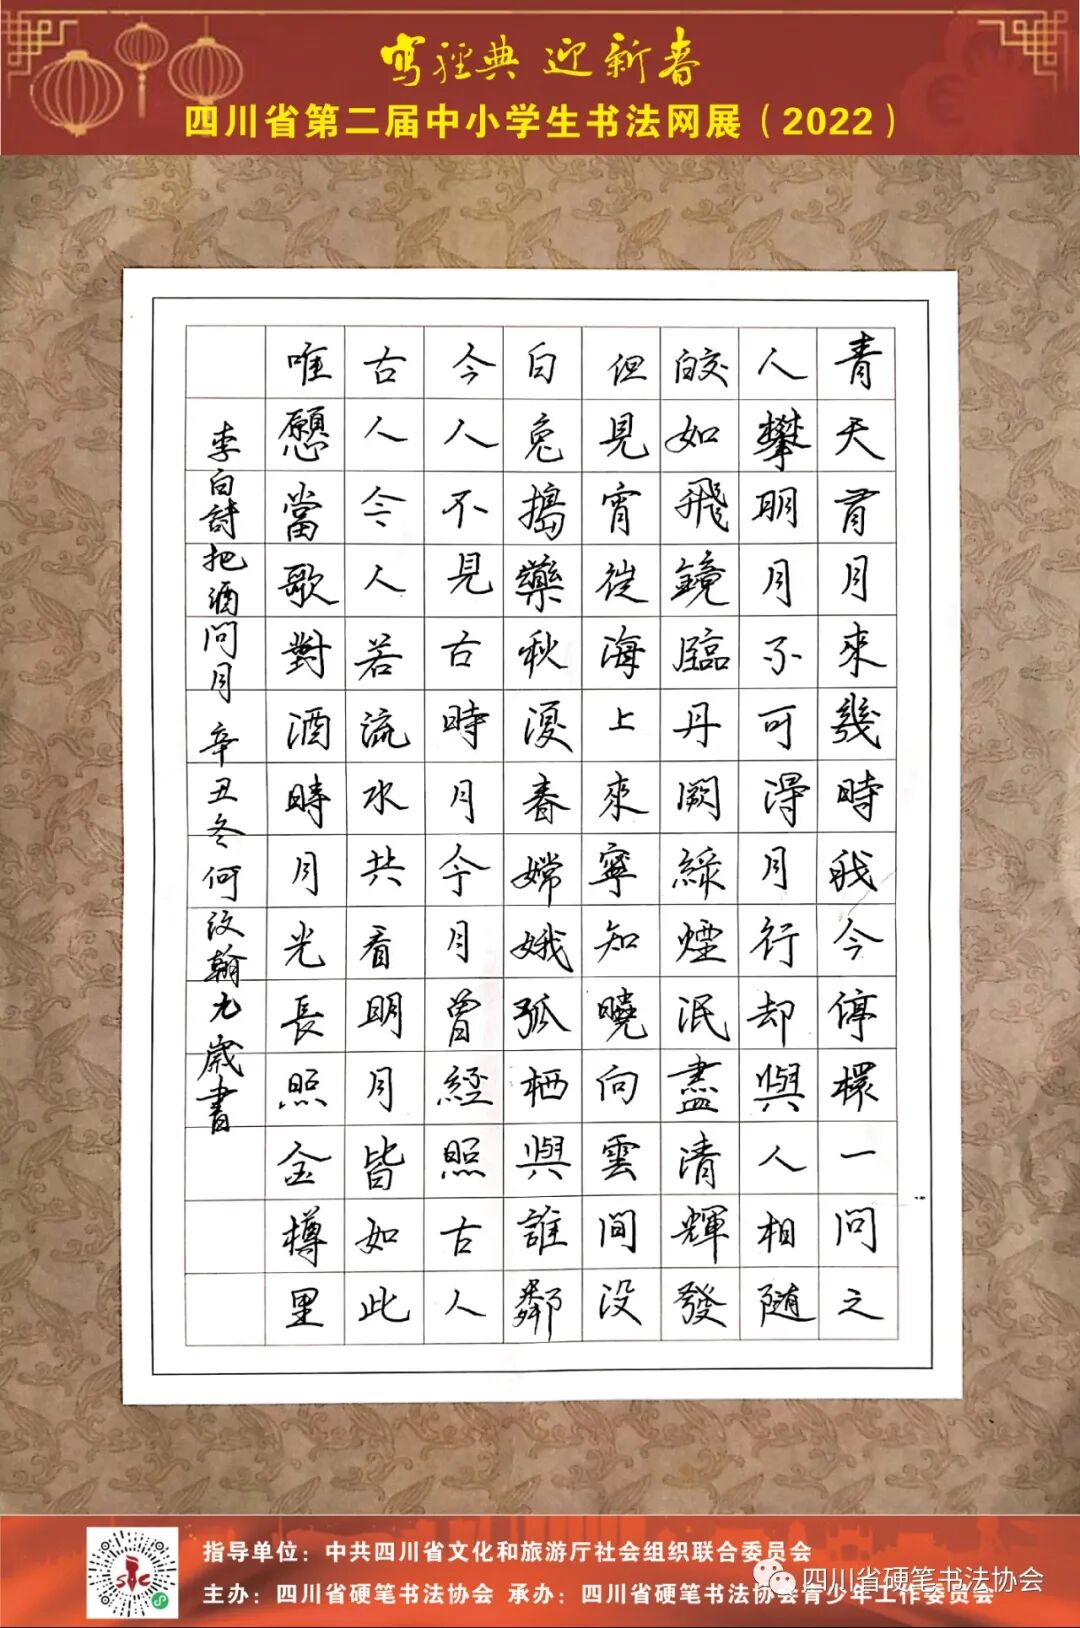 写經典 迎新春
四川省第二届中小学生书法网展（2022）
青天有月來幾時我今停杯一問之
人攀明月不可得月行却與人相随
皎如飛鏡臨丹闕綠煙泯盡清輝發
但見宵從海上來寧知曉向雲間没
白兔搗藥秋復春嫦娥孤栖與誰鄰
今人不見古時月今月曾經照古人
古人今人若流水共看明月皆如此
唯願當歌對酒時月光長照金樽里
李白詩把酒問月 辛丑冬何汶翰九歲書
指导单位：中共四川省文化和旅游厅社会组织联合委员会
主办：四川省硬笔书法协会 承办：四川省硬笔书法协会青少年工作委员会
四川省硬笔书法协会